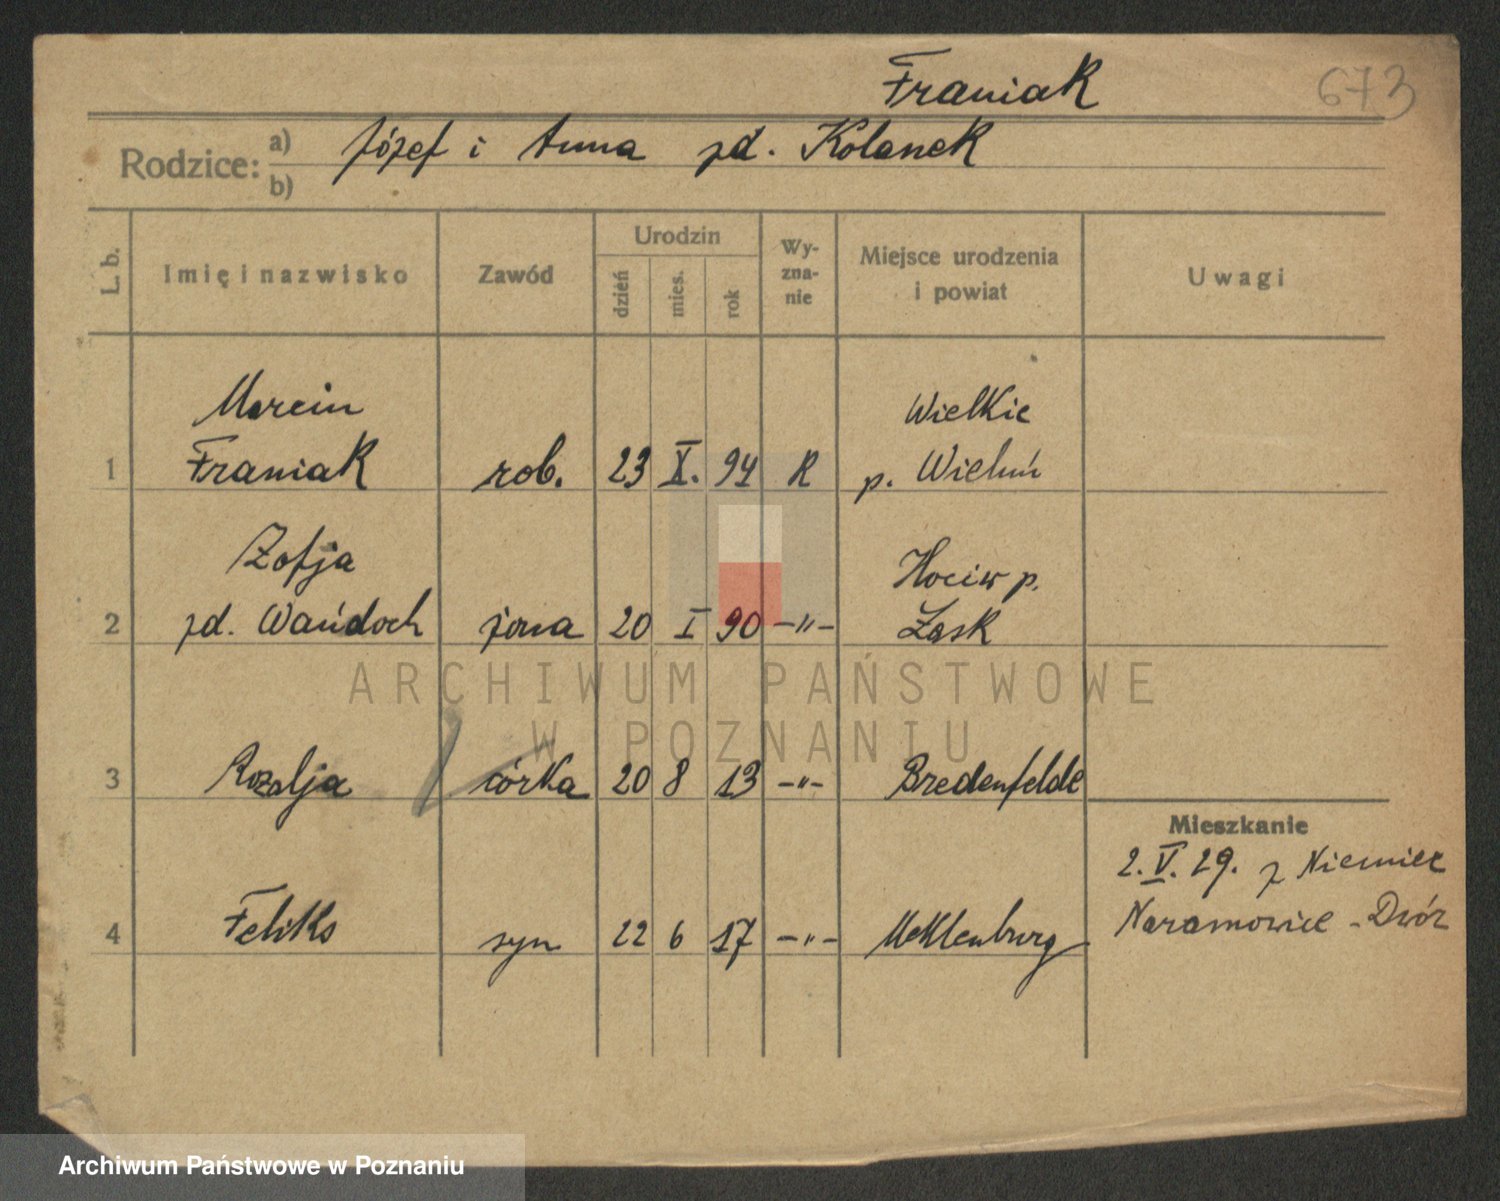 Franiak
673
Rodzice: a) Józef i Anna zd. Kolanek
b)
L. b. Imię i nazwisko Zawód Urodzin dzień mies. rok Wy-zna-nie Miejsce urodzenia i powiat Uwagi
Marcin Wielkie
1 Franiak rob. 23 X. 94 R p. Wieluń
Zofja p.
2 zd. Wańdoch żona 20 I 90 -"- Łask
ARCHIWUM PAŃSTWOWE
W POZNANIU
3 Rozalja córka 20 8 13 -"- Bredenfelde
Mieszkanie
2. V. 29. z Niemiec
Naramowice - Dwór
4 Feliks syn 22 6 17 -"- Meklenburg
Archiwum Państwowe w Poznaniu